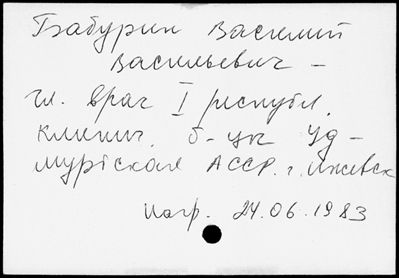 Бабурин Василий
Васильевич —
гл. врач I республ.
клинич. б-цы Уд-
муртская АССР. г. Ижевск
нагр. 24.06.1983